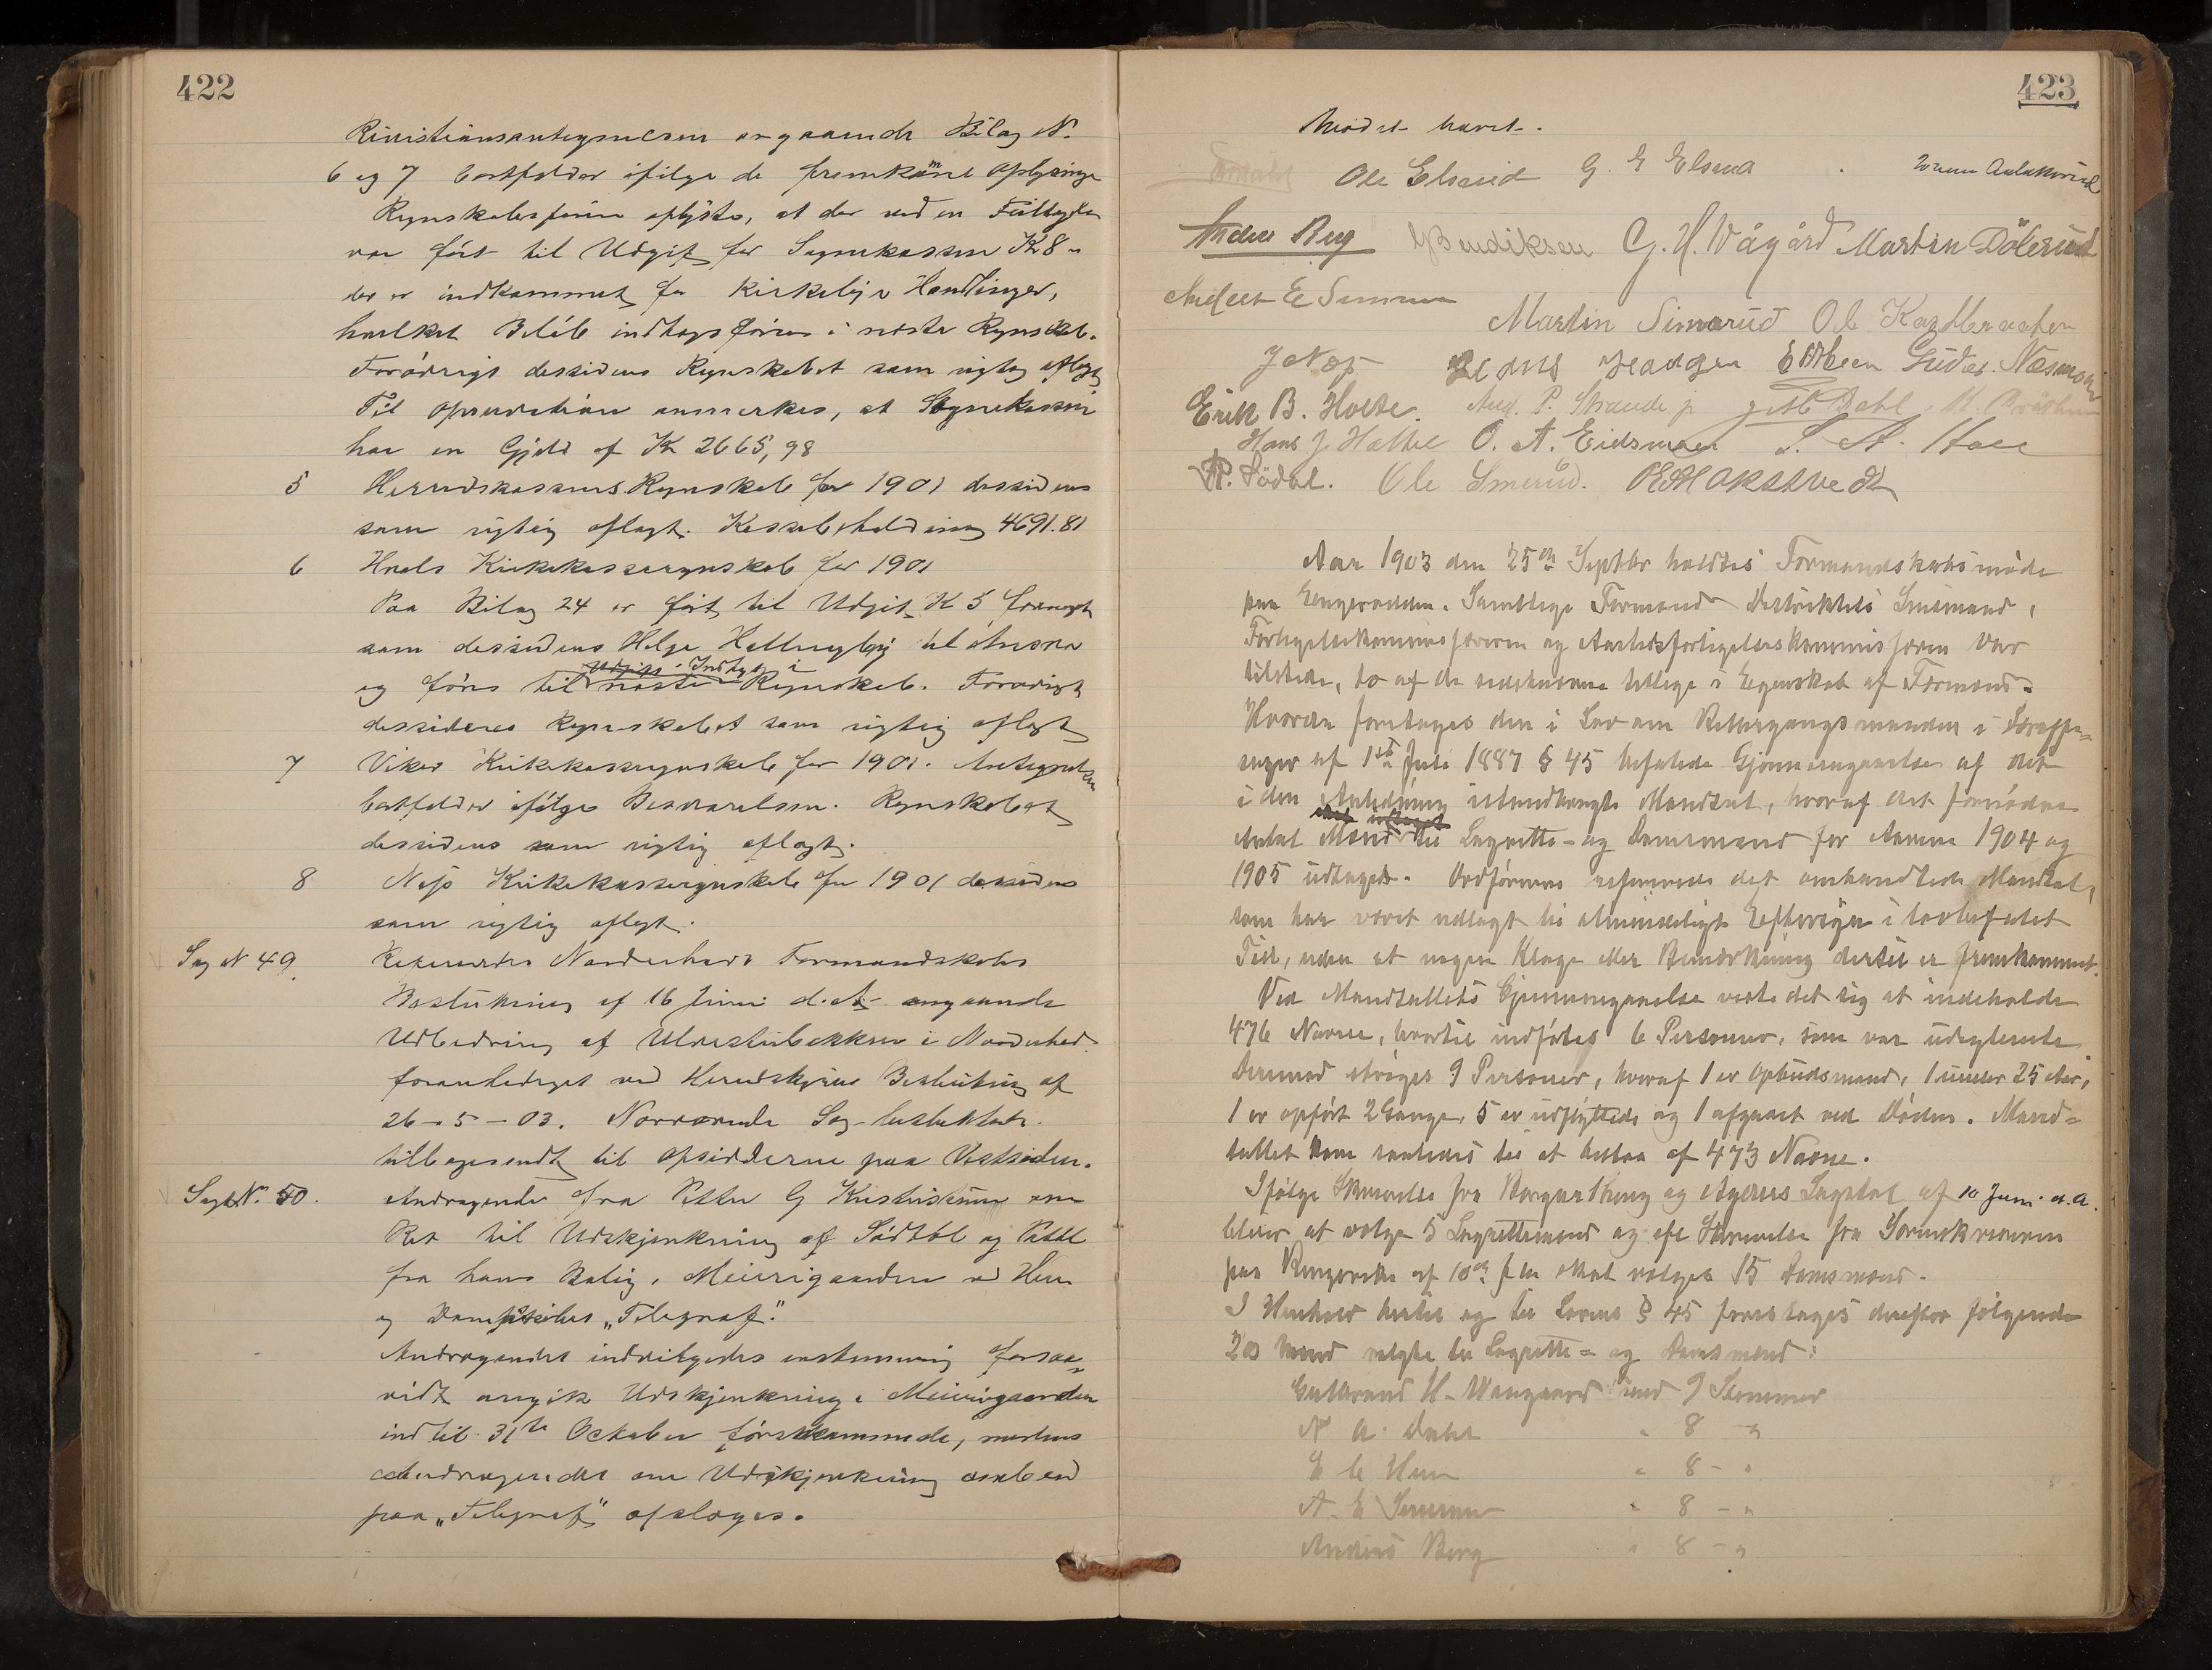 422
Revisionsantegnelsen angaaende Bilag N.
6 og 7 bortfalder ifølge de fremkomne Oplysninger
Regnskabsføreren oplyste, at der ved en
var ført til Udgift for Sognekassen Kr 8 -
der er indkommet for Kirkelige Handlinger,
hvilket Beløb indtægsføres i næste Regnskab.
Forøvrigt desideres Regnskabet som rigtig aflagt
Til Observation anmerkes, at Sognekassen
har en Gjeld af Kr 2665,98
5 Herredskassens Regnskab for 1901 desideres
som rigtig aflagt. Kassebeholdning 4691.81
6 Hols Kirkekasseregnskab for 1901
Paa Bilag 24 er ført til Udgift Kr 5
som desideres Helge til Ansvar
og føres til næste Regnskab. Forøvrigt
desideres Regnskabet som rigtig aflagt
7 Viker Kirkekasseregnskab for 1901. Antegnelsen
bortfalder ifølge Besvarelsen. Regnskabet
desideres som rigtig aflagt.
8 Næs Kirkekasseregnskab for 1901 desideres
som rigtig aflagt.
Sag N 49. Refereredes Norderhovs Formandskabs
Beslutning af 16 Juni d.A. angaaende
Udbedring af i Norderhov
foranlediget ved Herredstyrets Beslutning af
26-5-03. Nærværende Sag besluttedes
tilbagesendt til Opsidderne paa Vestsiden.
Sag N. 50. Andragende fra Petter G om
Ret til Udskjenkning af
fra hans Bolig, Meierigaarden ved Hen
og Dampskibet „Telegraf".
Andragendet indvilgedes enstemmig forsaa-
vidt angik Udskjenkning i Meierigaarden
indtil 31te Oktober førstkommende, medens
Andragendet om Udskjenkning ombord
paa „Telegraf" afsloges.
423
Mødet hævet.
Ole Elsrud G. E Elsrud
Anders Berg G Bendiksen G. H. Vågård Martin Dølerud
E Semmen
Martin Simarud Ole
Gudbr. Næsmoen
Erik B. Holte. Aug. P. Strande jr Dahl
Hans J. O. A. Eidsmoen
P. Södal. Ole Smerud.
Aar 1903 den 25de Septbr holdtes Formandskabsmøde
paa Samtlige Formænd Distriktets Lensmand,
Forligelseskommissæren og Arbeidsforligelseskommissæren var
tilstede, to af de sidstnævnte tillige i Egenskab af Formænd.
Hvorda foretages den i Lov om Rettergangsmaaden i Straffe-
sager af 1ste Juli 1887 § 45 befalede Gjennemgaaelse af det
i den Anledning istandbragte Mandtal, hvoraf det fornødne
Antal Mænd til Lagrette- og Domsmænd for Aarene 1904 og
1905 udtages. Ordføreren refererede det omhandlede Mandtal,
som har været udlagt til almindeligt Eftersyn i lovbefalet
Tid, uden at nogen Klage eller Bemærkning dertil er fremkommet.
Ved Mandtallets Gjennemgaaelse viste det sig at indeholde
476 Navne, hvortil indførtes 6 Personer, som var udeglemte
Derimod strøges 9 Personer, hvoraf 1 er Opbudsmand, 1 under 25 Aar,
1 er opført 2 Gange, 5 er udflyttede og 1 afgaaet ved Døden. Mand-
tallet kom saaledes til at bestaa af 473 Navne.
Ifølge Skrivelse fra Borgarthing og Agders Lagstol af 10 Juni d.A.
bliver at vælge 5 Lagrettemænd og efter Skrivelse fra Sorenskriveren
paa Ringerike af 10de f.M skal vælges 15 Domsmænd.
I Henhold hertil og til Lovens § 45 foretages derefter følgende
20 Mænd valgte til Lagrette- og Domsmænd:
Gulbrand H. Vaagaard med 9 Stemmer
N A. Dahl " 8 - "
E E Hen " 8 - "
A. E Semmen " 8 - "
Andreas Berg " 8 - "